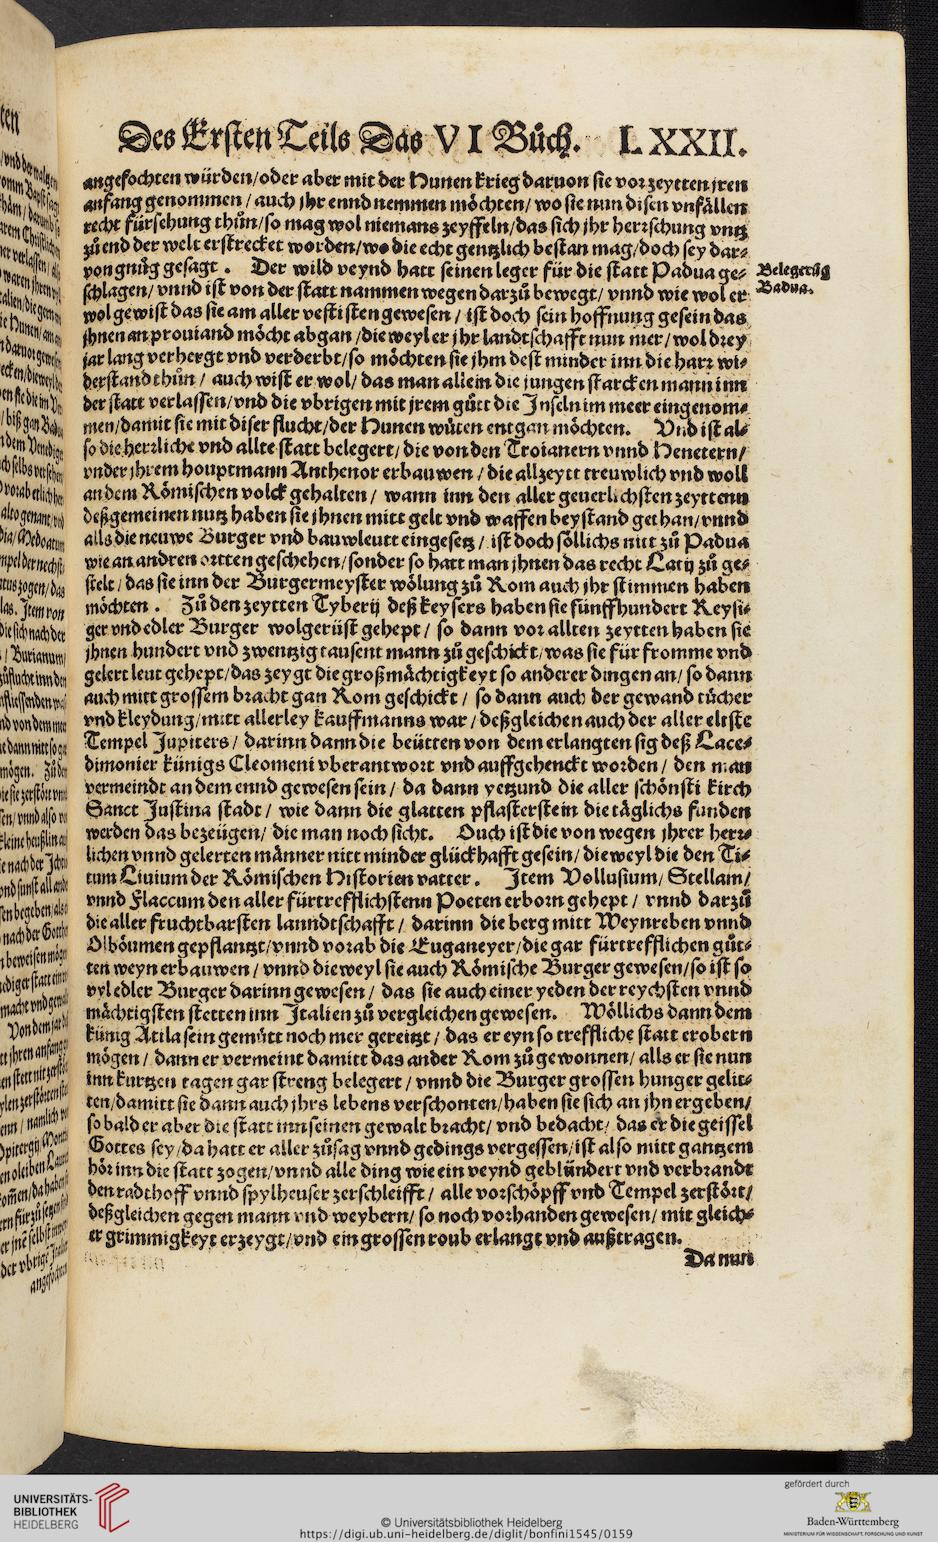 Des Ersten Teils Das VI Bůch. LXXII.
angefochten würden/oder aber mit der Hunen krieg daruon sie vor zeytten jren
anfang genommen / auch jhr ennd nemmen möchten/ wo sie nun disen vnfällen
recht fürsehung thůn/so mag wol niemans zeyffeln/das sich jhr herrschung vntz
zů end der welt erstrecket worden/wo die echt gentzlich bestan mag/doch sey dar-
von gnůg gesagt. Der wild veynd hatt seinen leger für die statt Padua ge-
schlagen/ vnnd ist von der statt nammen wegen darzů bewegt/ vnnd wie wol er
wol gewist das sie am aller vestisten gewesen / ist doch sein hoffnung gesein das
jhnen an prouiand möcht abgan / die weyl er jhr landtschafft nun mer/ wol drey
jar lang verhergt vnd verderbt/so möchten sie jhm dest minder inn die harr wi-
derstand thůn / auch wist er wol/ das man allein die jungen starcken mann inn
der statt verlassen/vnd die vbrigen mit jrem gůtt die Inseln im meer eingenom-
men/damit sie mit diser flucht/der Hunen wůten entgan möchten. Vnd ist al-
so die herrliche vnd allte statt belegert/ die von den Troianern vnnd Henetern/
vnder jhrem houptmann Anthenor erbauwen / die allzeytt treuwlich vnd woll
an dem Römischen volck gehalten / wann inn den aller geuerlichsten zeyttenn
deß gemeinen nutz haben sie jhnen mitt gelt vnd waffen beystand gethan/vnnd
alls die neuwe Burger vnd bauwleutt eingesetz / ist doch söllichs nitt zů Padua
wie an andren ortten geschehen/sonder so hatt man jhnen das recht Latij zů ge-
stelt / das sie inn der Burgermeyster wölung zů Rom auch jhr stimmen haben
möchten. Zů den zeytten Tyberij deß keysers haben sie fünffhundert Reysi-
ger vnd edler Burger wolgerüst gehept / so dann vor allten zeytten haben sie
jhnen hundert vnd zwentzig tausent mann zů geschickt/was sie für fromme vnd
gelert leut gehept/das zeygt die großmächtigkeyt so anderer dingen an/ so dann
auch mitt grossem bracht gan Rom geschickt / so dann auch der gewand tücher
vnd kleydung/mitt allerley kauffmanns war / deßgleichen auch der aller eltste
Tempel Jupiters / darinn dann die beütten von dem erlangten sig deß Lace-
dimonier künigs Cleomeni vberantwort vnd auffgehenckt worden / den man
vermeindt an dem ennd gewesen sein / da dann yetzund die aller schönsti kirch
Sanct Justina stadt / wie dann die glatten pflasterstein die täglichs funden
werden das bezeügen / die man noch sicht. Ouch ist die von wegen jhrer herr-
lichen vnnd gelerten männer nitt minder glückhafft gesein / die weyl die den Ti-
tum Liuium der Römischen Historien vatter. Item Vollusium/ Stellam/
vnnd Flaccum den aller fürtrefflichstenn Poeten erborn gehept / vnnd darzů
die aller fruchtbarsten lanndtschafft / darinn die berg mitt Weynreben vnnd
Olböumen gepflantzt/vnnd vorab die Euganeyer/die gar fürtrefflichen gůt-
ten weyn erbauwen / vnnd dieweyl sie auch Römische Burger gewesen/so ist so
vyl edler Burger darinn gewesen / das sie auch einer yeden der reychsten vnnd
mächtigsten stetten inn Italien zů vergleichen gewesen. Wöllichs dann dem
künig Atila sein gemůtt noch mer gereitzt / das er eyn so treffliche statt erobern
mögen / dann er vermeint damitt das ander Rom zů gewonnen/ alls er sie nun
inn kurtzen tagen gar streng belegert / vnnd die Burger grossen hunger gelit-
ten/damitt sie dann auch jhrs lebens verschonten/haben sie sich an jhn ergeben/
so bald er aber die statt inn seinen gewalt bracht/ vnd bedacht/ das er die geissel
Gottes sey / da hatt er aller zůsag vnnd gedings vergessen/ist also mitt gantzem
hör inn die statt zogen/vnnd alle ding wie ein veynd geblündert vnd verbrandt
den radthoff vnnd spylheuser zerschleifft / alle vorschöpff vnd Tempel zerstört/
deßgleichen gegen mann vnd weybern/ so noch vorhanden gewesen/ mit gleich-
er grimmigkeyt erzeygt/vnd ein grossen roub erlangt vnd außtragen.
Da nun
Belegerūg
Badua.
UNIVERSITÄTS-
BIBLIOTHEK
HEIDELBERG
© Universitätsbibliothek Heidelberg
https://digi.ub.uni-heidelberg.de/diglit/bonfini1545/0159
gefördert durch
Baden-Württemberg
MINISTERIUM FÜR WISSENSCHAFT, FORSCHUNG UND KUNST